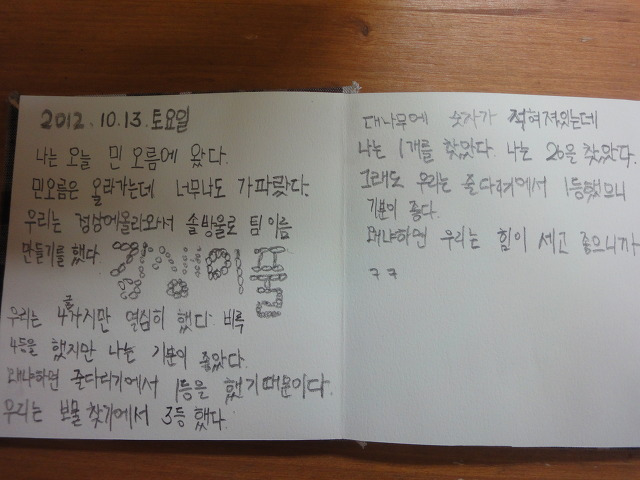 2012.10.13.토요일
나는 오늘 민 오름에 왔다.
민오름은 올라가는데 너무나도 가파랐다.
우리는 정상에올라와서 솔방울로 팀 이름
만들기를 했다.
우리는 4글자지만 열심히 했다. 비록
4등을 했지만 나는 기분이 좋았다.
왜냐하면 줄다리기에서 1등을 했기 때문이다.
우리는 보물 찾기에서 3등 했다.
대나무에 숫자가 적혀져있는데
나는 1개를 찾았다. 나는 26을 찾았다.
그래도 우리는 줄다리기에서 1등했으니
기분이 좋다.
왜냐하면 우리는 힘이 세고 좋으니까
ㅋㅋ